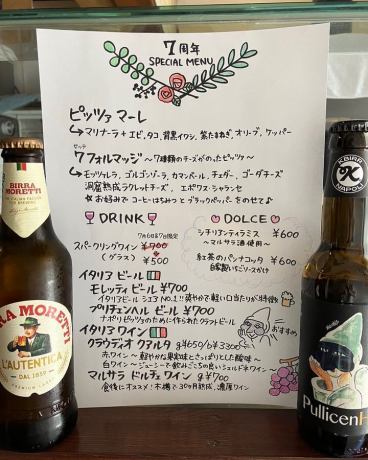 7周年
SPECIAL MENU
ピッツァ マーレ
↳マリナーラ+エビ、タコ、背黒イワシ、紫たまねぎ、オリーブ、ケッパー
ゼッテ
7フォルマッジ ～7種類のチーズがのったピッツァ～
↳モッツァレラ、ゴルゴンゾーラ、カマンベール、チェダー、ゴーダチーズ
洞窟熟成ラクレットチーズ、エポワス・シャランセ
☆お好みで コーヒーはちみつと ブラックペッパーをのせて♪
DRINK
7月6日~7日限定
スパークリングワイン ¥700
(グラス) ¥500
DOLCE
シチリアンティラミス ¥600
～マルサラ酒使用～
紅茶のパンナコッタ ¥600
自家製いちごソースがけ
イタリア ビール
モレッティ ビール ¥700
イタリアビール シェアNo.1!! 爽やかで軽い口当たりが特徴
プリチェンヘル ビール ¥700
ナポリピッツァのために作られたクラフトビール
おすすめ
イタリア ワイン
クラウディオ クアルタ g¥650/b¥3300
赤ワイン～軽やかな果実味とさっぱりした酸味～
白ワイン～ジューシーで飲みごこちの良いシャルドネワイン
マルサラ ドルチェ ワイン g¥700
食後にオススメ!木樽で30ヶ月熟成、濃厚ワイン
BIRRA MORETTI
BIRRA MORETTI
L'AUTENTICA
DAL 1859
KBIRR
NAPOLI
PullicenH